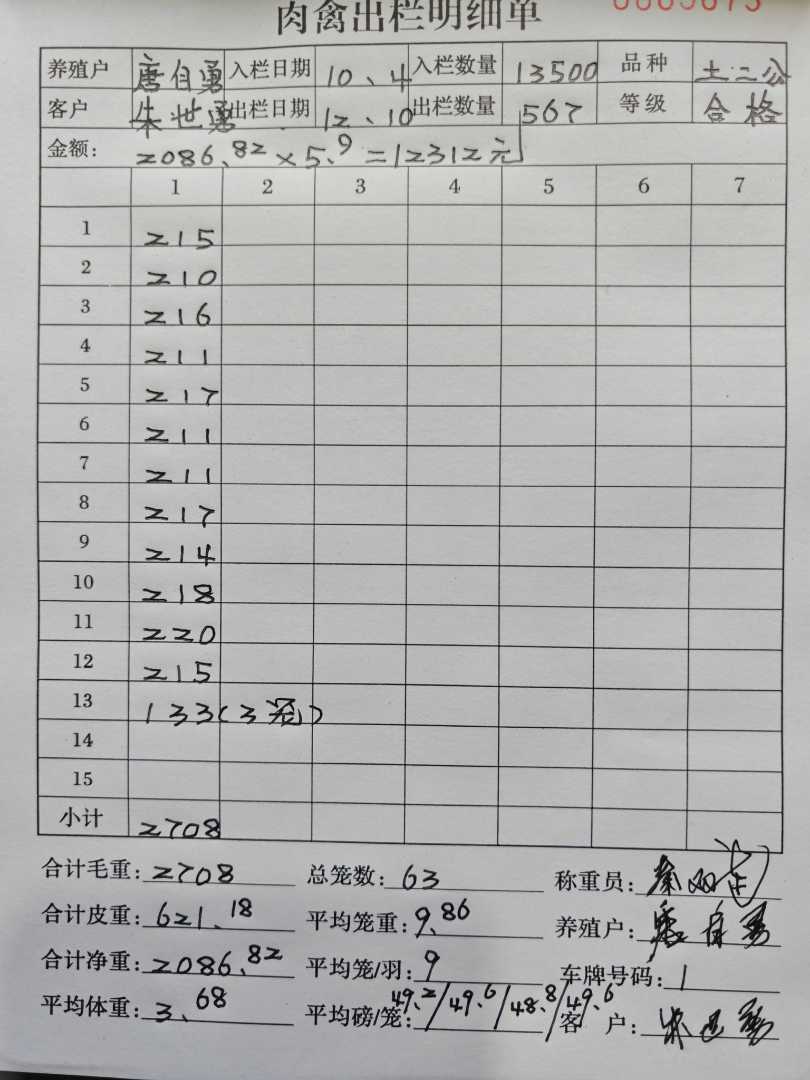 肉禽出栏明细单
养殖户 唐自勇 入栏日期 10、4 入栏数量 13500 品种 土二公
客户 朱世勇 出栏日期 12、10 出栏数量 567 等级 合格
金额: 2086.82×5.9=12312元
1 2 3 4 5 6 7
1 215
2 210
3 216
4 211
5 217
6 211
7 211
8 217
9 214
10 218
11 220
12 215
13 133(3笼)
14
15
小计 2708
合计毛重: 2708 总笼数: 63 称重员:
合计皮重: 621.18 平均笼重: 9.86 养殖户: 唐自勇
合计净重: 2086.82 平均笼/羽: 9 车牌号码: 1
平均体重: 3.68 平均磅/笼: 49.2/49.6/48.8/49.6 客户: